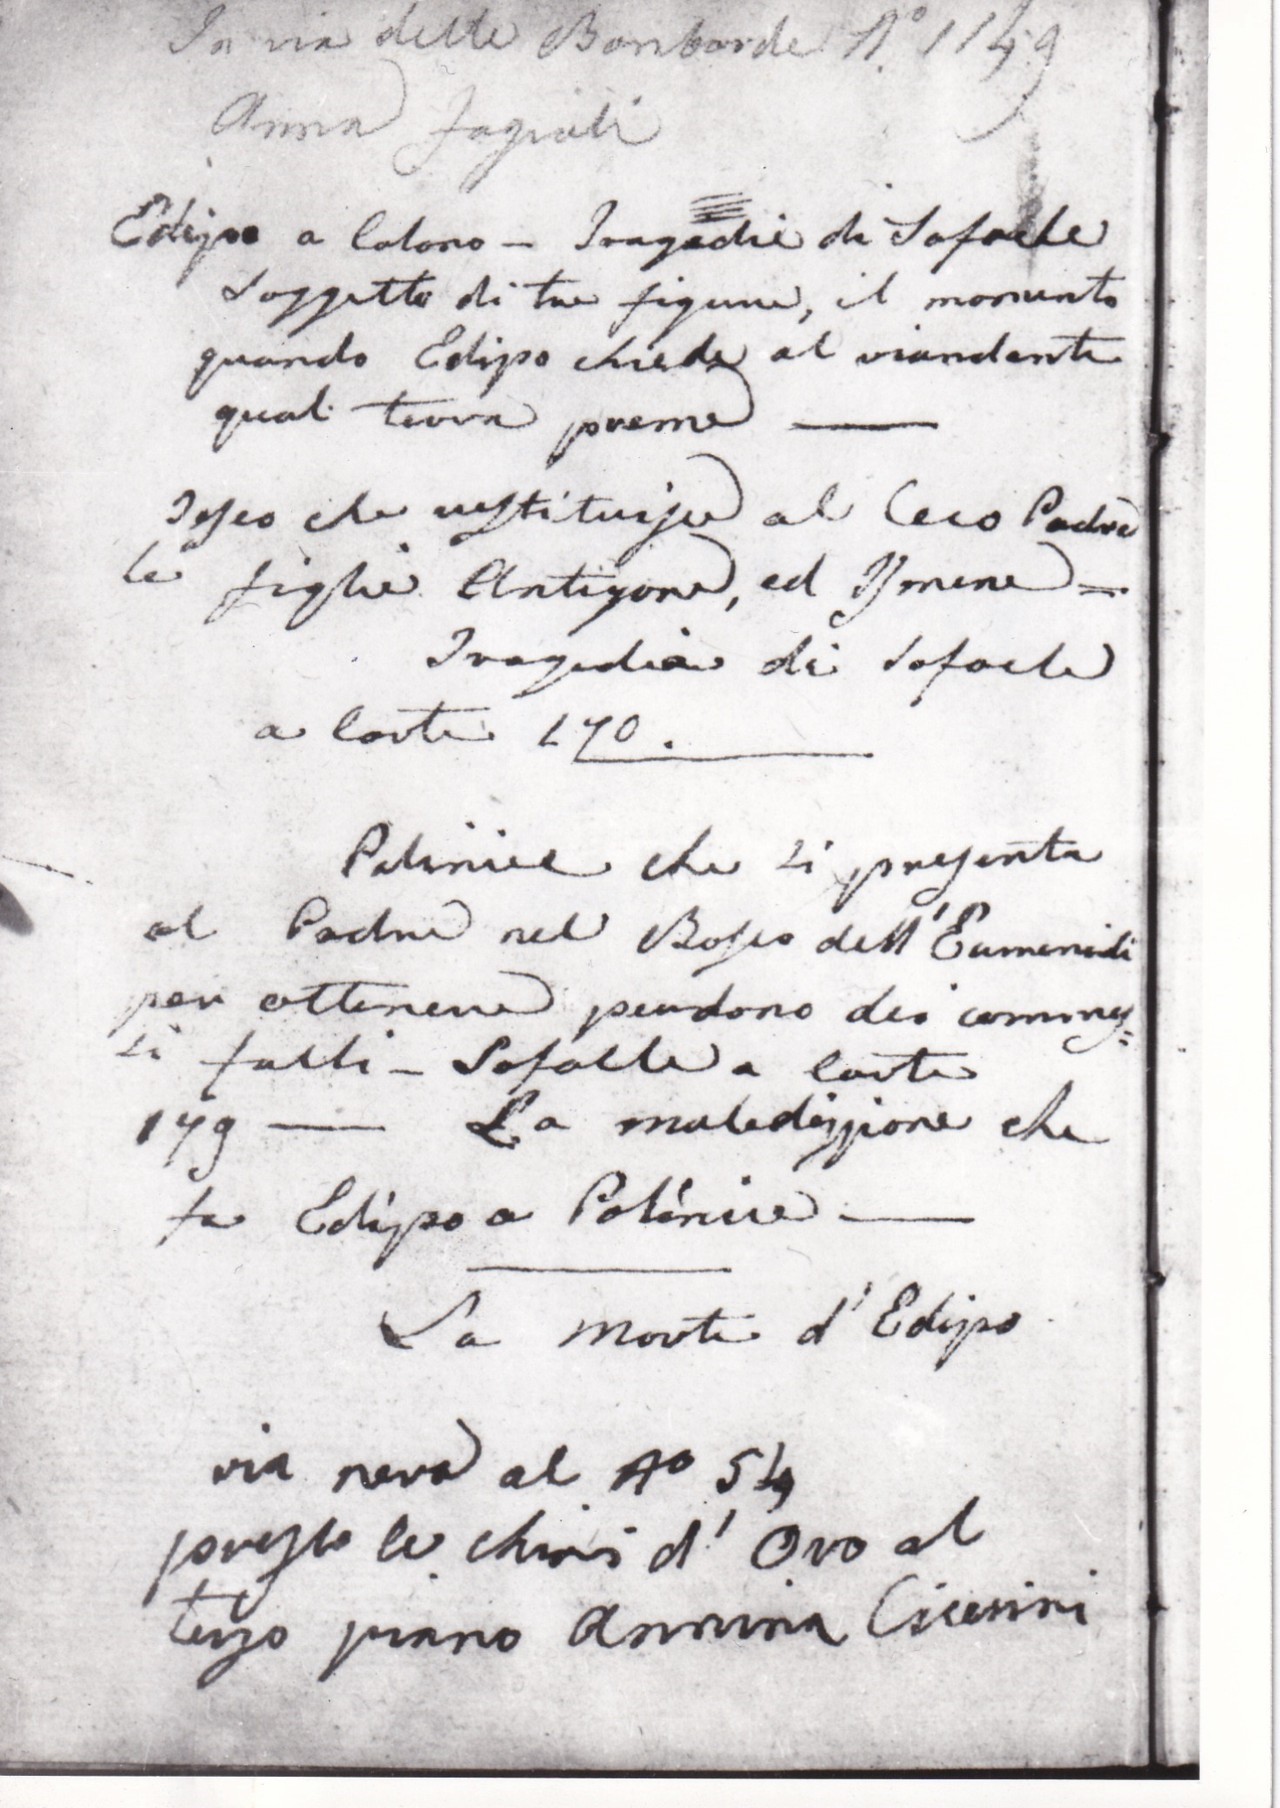 In via delle Bombarde N.º 1149
Anna Fagioli
Edipo a Colono – Tragedie di Sofocle
Soggetto di tre figure, il momento
quando Edipo chiede al viandante
qual terra preme —
Teseo che restituisce al Ceco Padre
le figlie Antigone, ed Ismene =
Tragedia di Sofocle
a Carte 170.
Polinice che si presenta
al Padre nel Bosco dell'Eumenidi
per ottenere perdono dei commes=
si falli – Sofocle a Carte
179 — La maledizzione che
fa Edipo a Polinice —
La Morte d'Edipo
via nova al Nº 54
presso le chiavi d'Oro al
terzo piano Annina